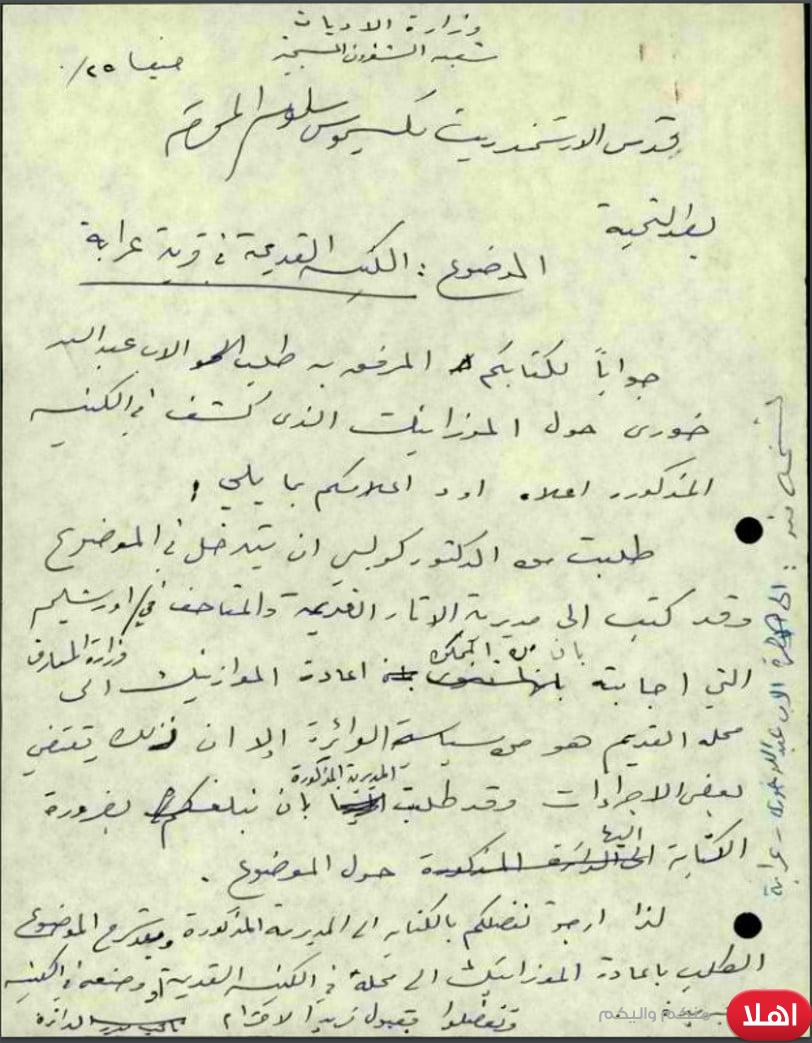 وزارة الاديان
شعبة الشؤون المسيحية
حيفا ٢٥/
قدس الارشمندريت مكسيموس سلوم المحترم
بعد التحية
الموضوع : الكنيسة القديمة في قرية عرابة
جواباً لكتابكم المرفق به طلب الاب عبدالله
خوري حول الموزاييك الذي كشف في الكنيسة
المذكورة اعلاه اود اعلامكم بما يلي :
طلبت من الدكتور كولبي ان يتدخل في الموضوع
وقد كتب الى مديرية الاثار القديمة والمتاحف في اورشليم
وزارة المعارف
التي اجابته بان من الممكن اعادة الموازييك الى
محله القديم هو من سياسة الدائرة إلا ان ذلك يقتضي
بعض الاجراءات وقد طلبت المديرية المذكورة بان نبلغكم بضرورة
الكتابة اليها حول الموضوع .
لذا ارجو تفضلكم بالكتابة الى المديرية المذكورة وبعد شرح الموضوع
الطلب باعادة الموزاييك الى محله في الكنيسة القديمة او وضعه في الكنيسة
وتفضلوا بقبول فريد الاحترام
نسخة منه : الى حضرة الاب عبدالله خوري - عرابة
منكم واليكم
اهلا